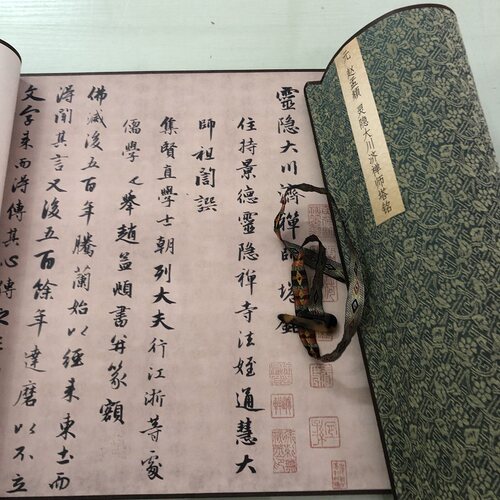 元 赵孟頫 灵隐大川济禅师塔铭
靈隐大川濟禪師塔銘
住持景德靈隐禪寺法姪通慧大
師祖誾譔
集賢直學士朝列大夫行江浙等處
儒學提舉趙孟頫書并篆額
佛滅後五百年騰蘭始以經来東土而
得聞其言又後五百餘年達磨以不立
文字来而得傳其心傳之